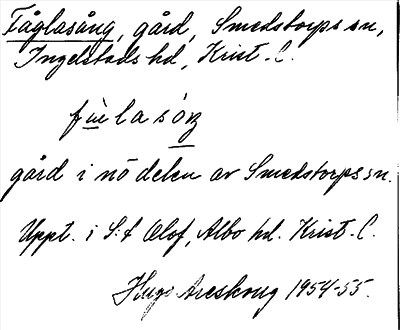 Fåglasång, gård, Smedstorps sn,
Ingelstads hd, Krist. L.
gård i nö delen av Smedstorps sn.
Uppt. i S:t Olof, Albo hd. Krist. L.
Hugo Areskoug 1954-55.